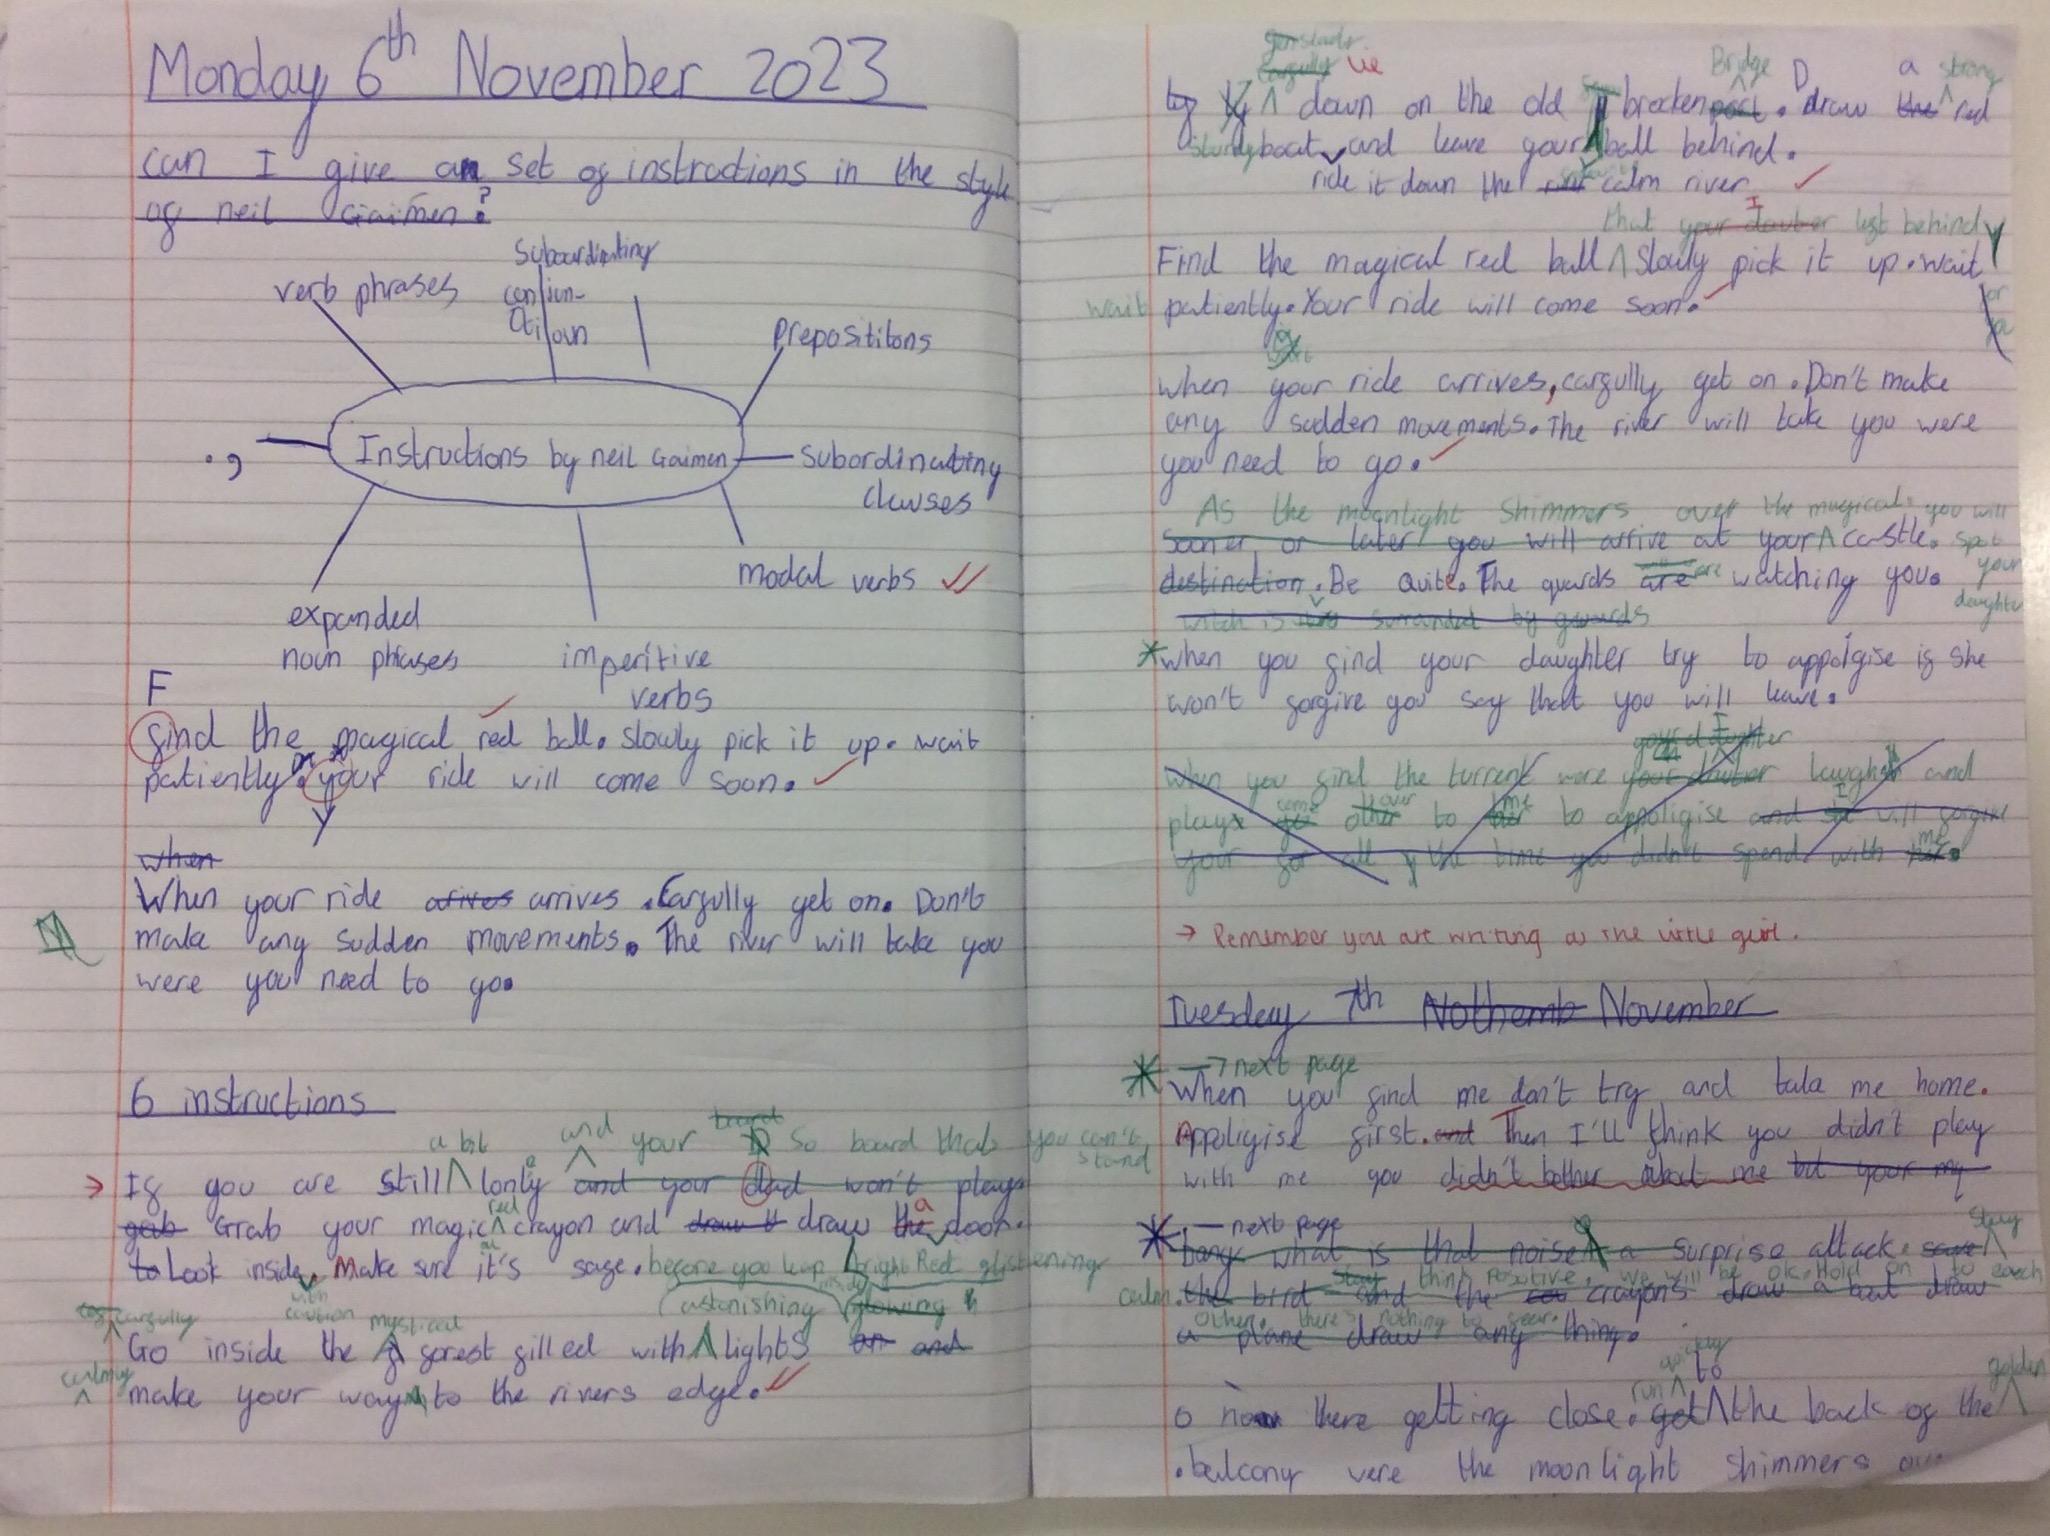 Monday 6th November 2023
can I give an set of instructions in the style
of neil Gaimen?
Subourdinting
conjun-
ction
verb phrases
Prepositions
., 
Instructions by neil Gaimen
Subordinating
clauses
modal verbs
expanded
noun phrases
imperitive
verbs
F
find the magical red ball. slowly pick it up. wait
patiently. your ride will come soon.
Y
when
When your ride arives arrives. Carfully get on. Don't
make any sudden movements. The river will take you
were you need to go.
6 instructions
a bit and your board so board that you can't
stand
→ If you are still lonly and your dad won't play
grab Grab your magic red crayon and draw it draw the a door.
to Look inside with caution. Make sure it's safe. before you leap bright Red glistening
carfully mystical (astonishing glowing
Go inside the forest filled with lights and
calmly make your way to the rivers edge.
carfully
Bridge D a strong
down on the old brocken port. draw the red
sturdy boat and leave your ball behind.
ride it down the calm river
that your dauter I left behind
Find the magical red ball slowly pick it up. wait
wait patiently. Your ride will come soon.
when your ride arrives, carfully get on. Don't make
any sudden movements. The river will take you were
you need to go.
As the moonlight Shimmers over the magical you will
Sooner or later you will arrive at your castle. spot
destination. Be Quite. The guards are are watching you. your
daughter
witch is surranded by gowards
*when you find your daughter try to appolgise if she
won't forgive you say that you will leave.
your daughter
When you find the turrent were your dauter I laugh and
play come over to me to appoligise and I will forgive
your for all the time you didn't spend with me.
→ Remember you are writing as the little girl.
Tuesday 7th Nothemb November
* → next page
When you find me don't try and take me home.
Appoligise first. and Then I'll think you didn't play
with me you didn't bother about me but your my
* → next page
bang what is that noise a surprise attack. Stay
calm. think Positive, we will be ok. Hold on to each
the bird and the crayons draw a boat draw
other. there's nothing to fear.
a plane draw any thing.
o no there getting close. run get to the back of the golden
balcony were the moonlight shimmers